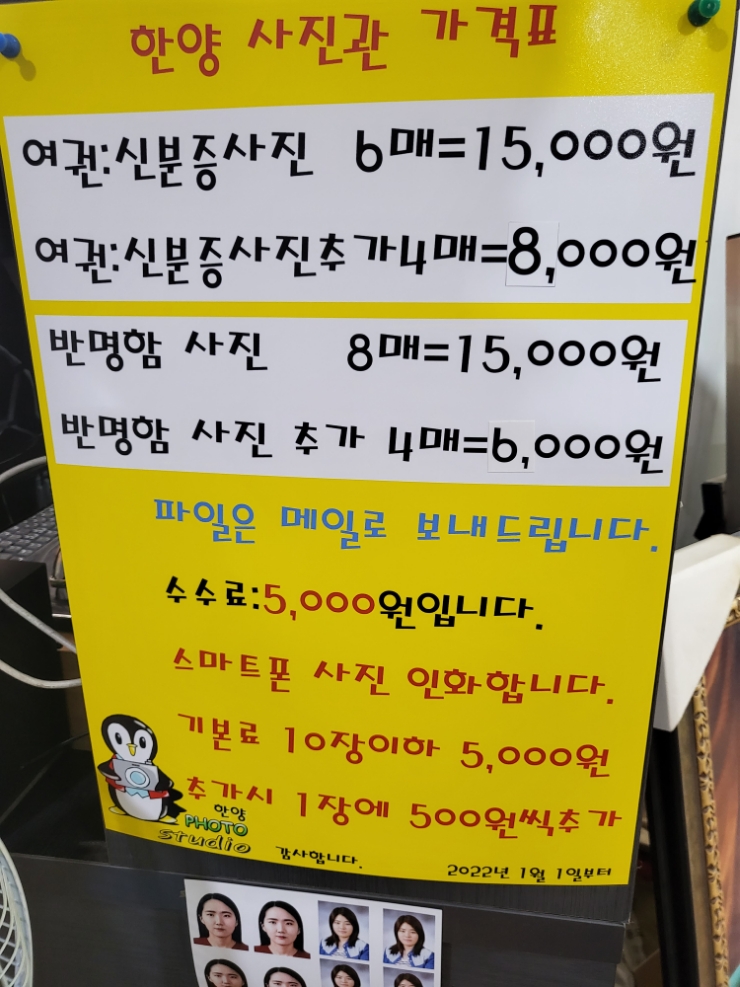 한양 사진관 가격표
여권:신분증사진 6매=15,000원
여권:신분증사진추가4매=8,000원
반명함 사진 8매=15,000원
반명함 사진 추가 4매=6,000원
파일은 메일로 보내드립니다.
수수료:5,000원입니다.
스마트폰 사진 인화합니다.
기본료 10장이하 5,000원
추가시 1장에 500원씩추가
한양
PHOTO
studio
감사합니다.
2022년 1월 1일부터